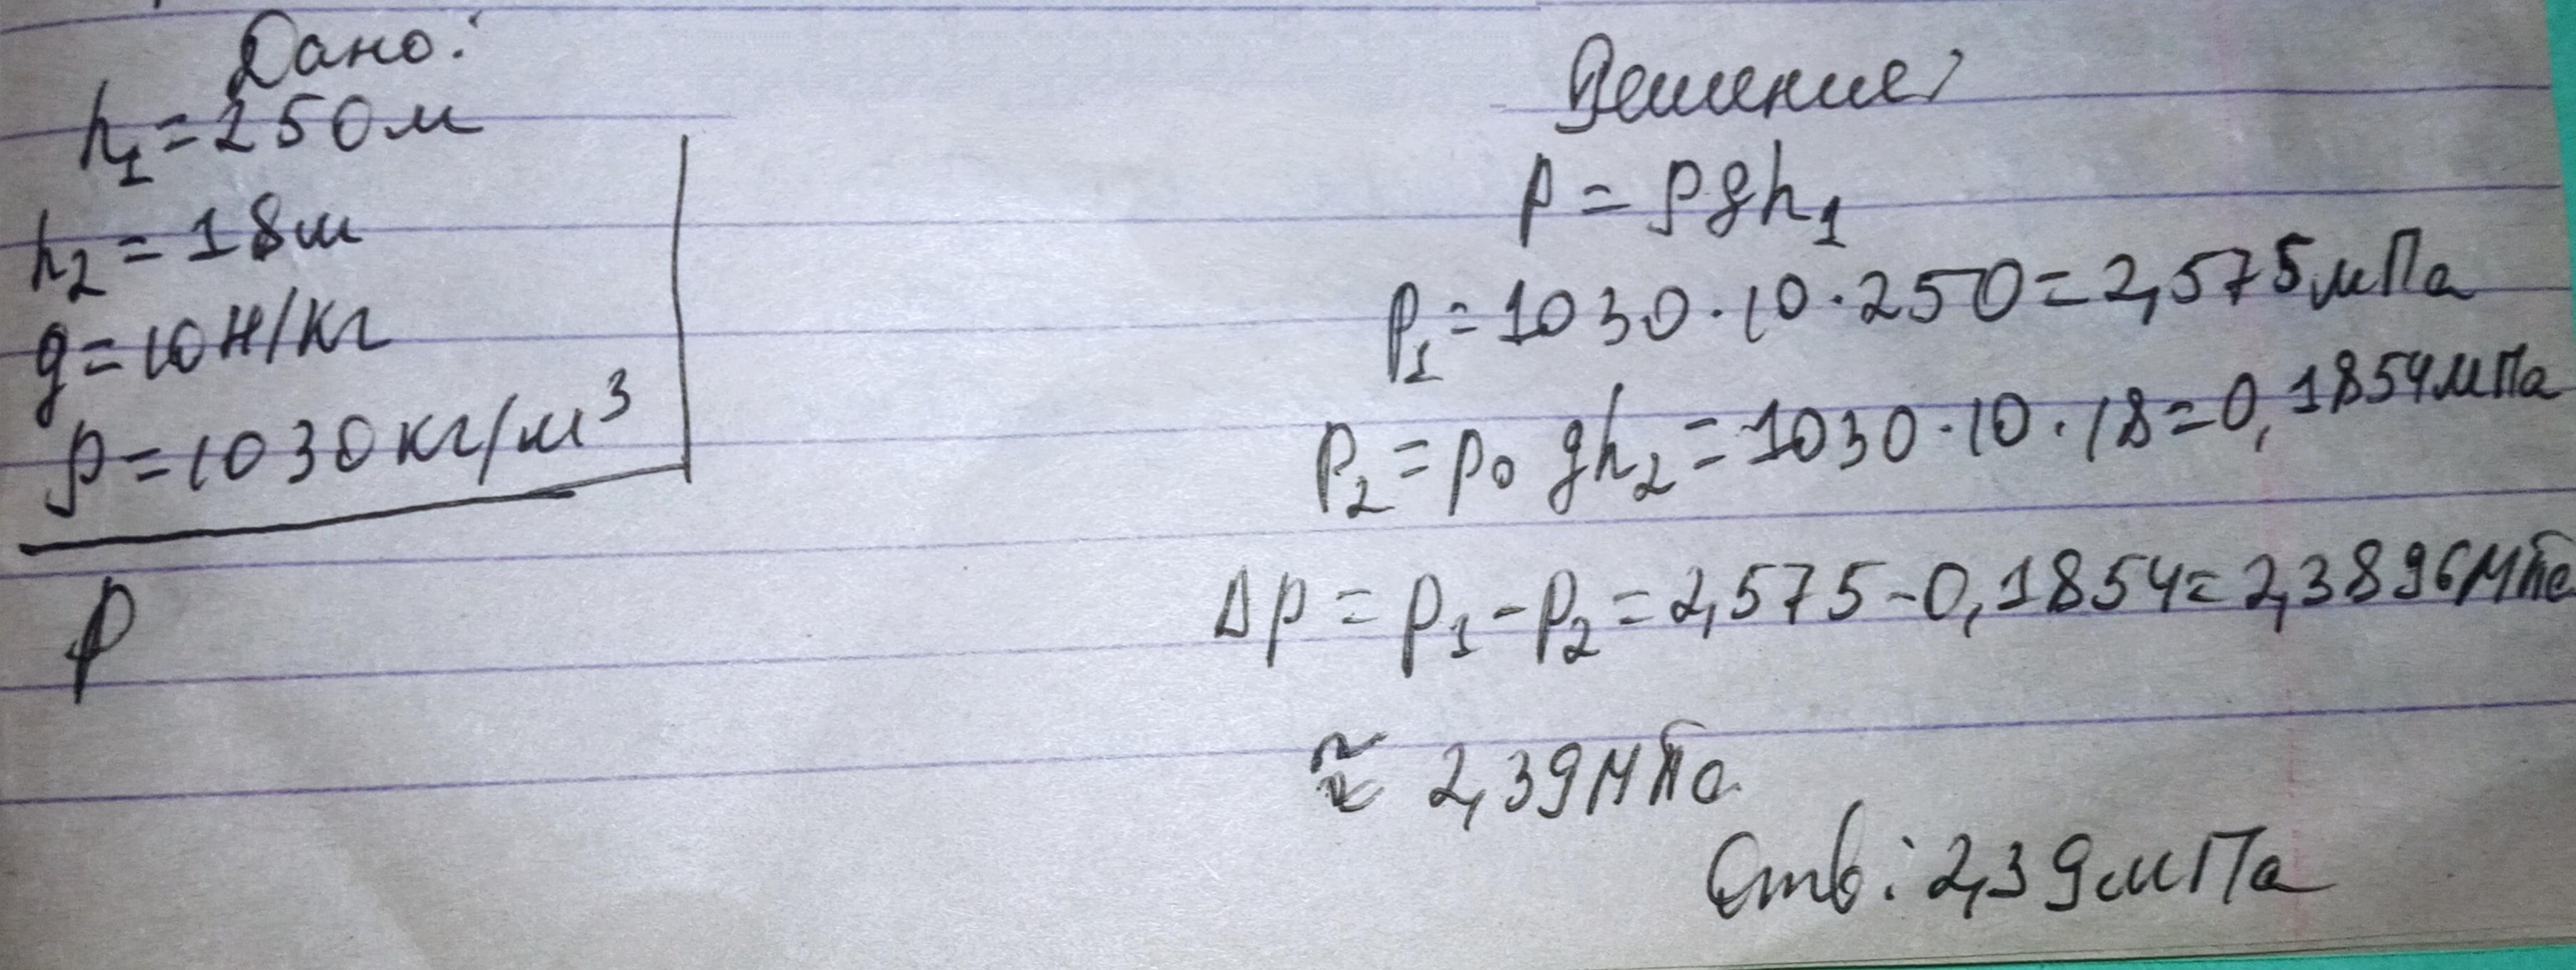 Дано:
h₁=250м
h₂=18м
g=10Н/кг
ρ=1030кг/м³
p
Решение:
p=ρgh₁
p₁=1030·10·250=2,575мПа
p₂=p₀ gh₂=1030·10·18=0,1854мПа
Δp=p₁-p₂=2,575-0,1854=2,3896МПа
≈ 2,39МПа
Отв: 2,39мПа